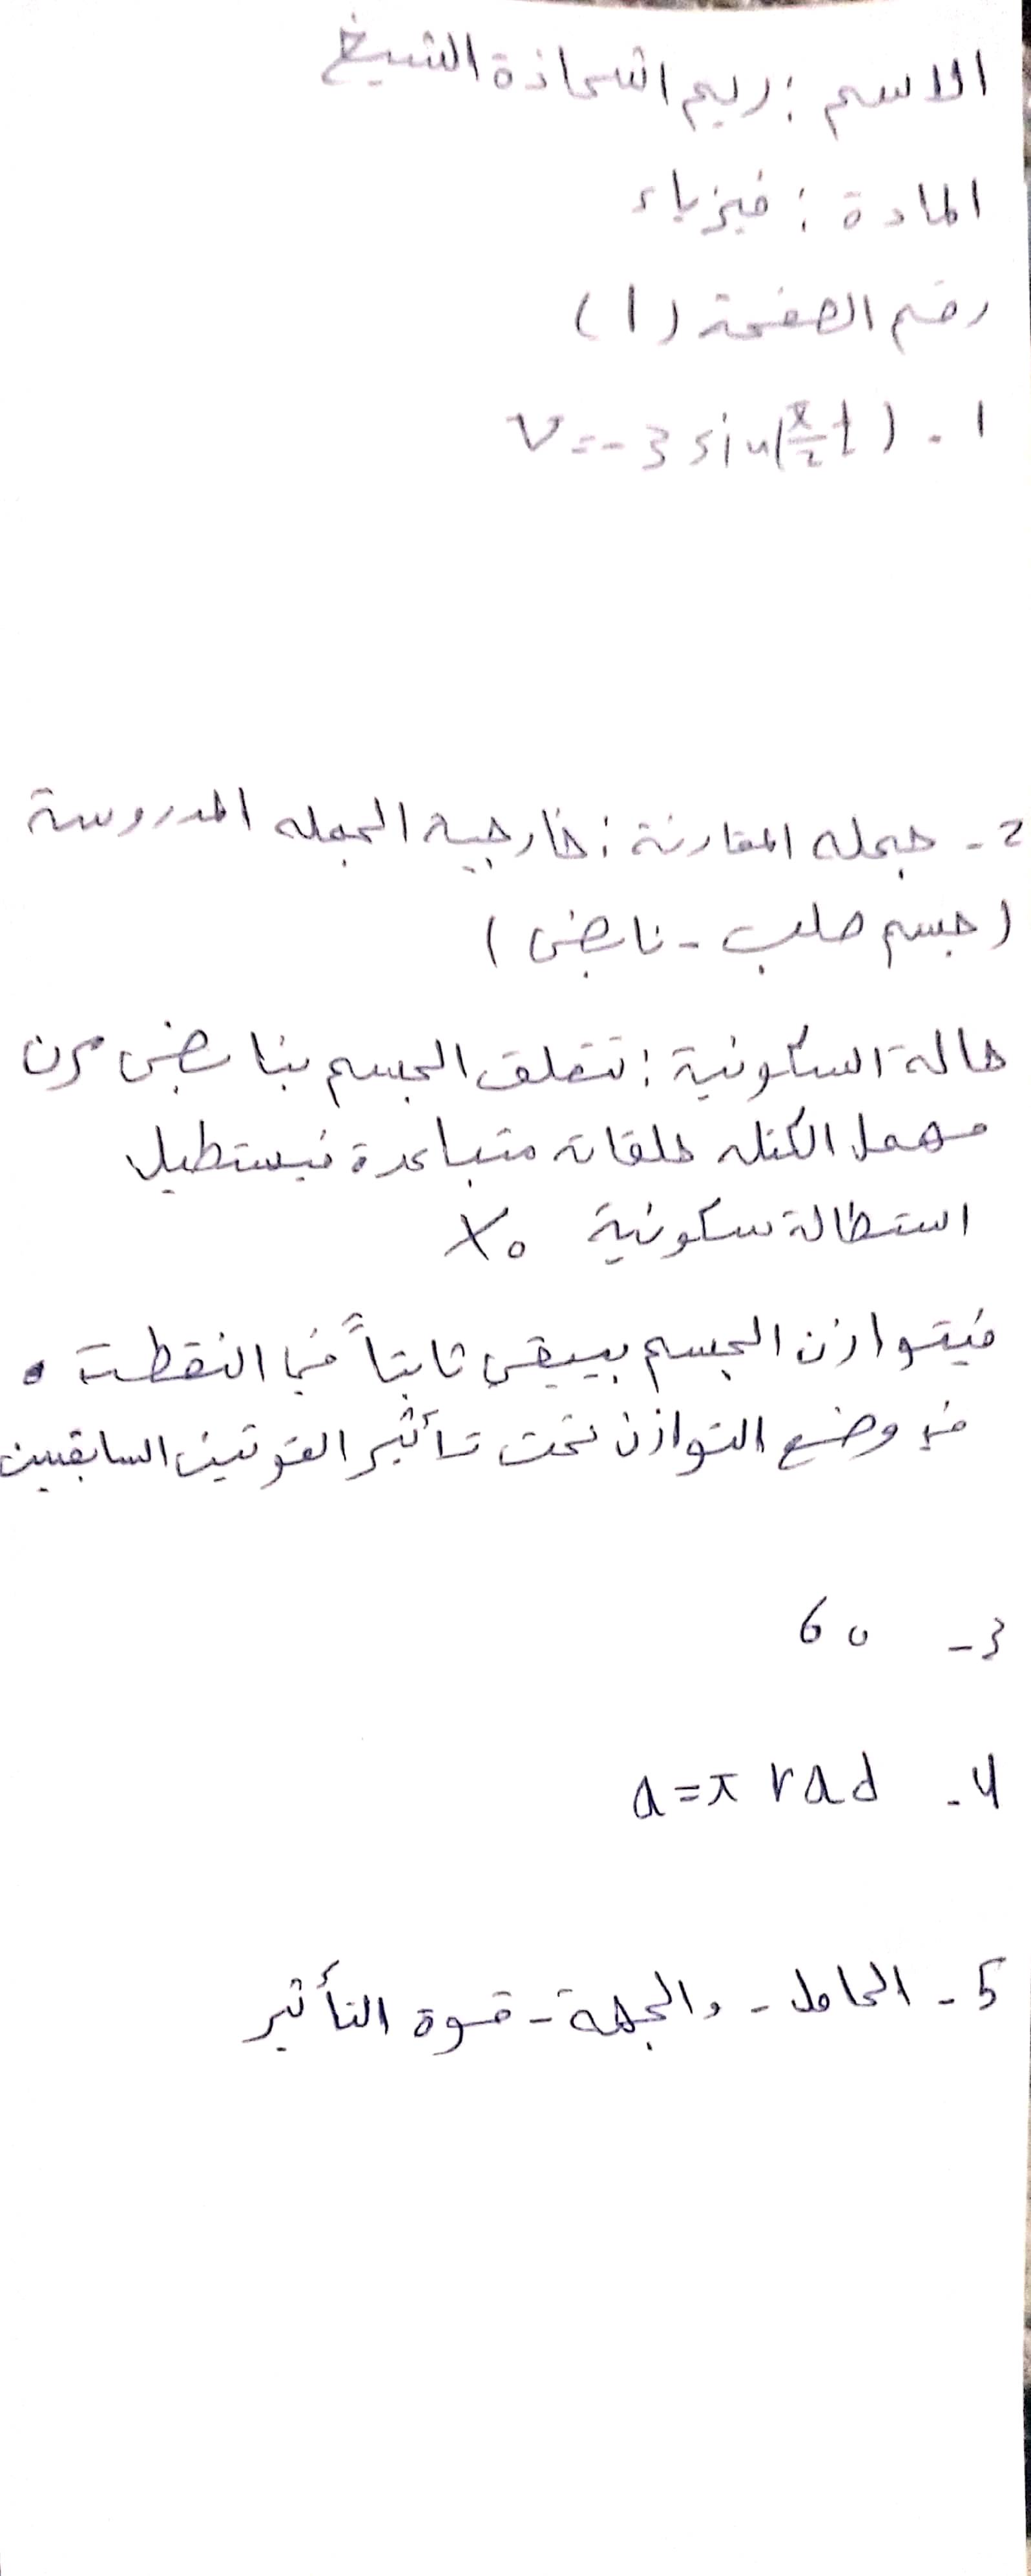 الاسم : ريم الشحاذة الشيخ
المادة : فيزياء
رقم الصفحة (1)
1 - v = -3 sin(π/2 t)
2 - جمله المقارنة : خارجية الجمله المدروسة
(جسم صلب - نابض)
حالة السكونية : نتعلق الجسم بنابض مرن
مهمل الكتله حلقاته متباعدة فيستطيل
استطالة سكونية X0
فيتوازن الجسم بيبقى ثابتاً في النقطة
في وضع التوازن تحت تأثير القوتين السابقيين
3 - 60
4 - a = π rad
5 - الحامل - والجهة - قوة التأثير